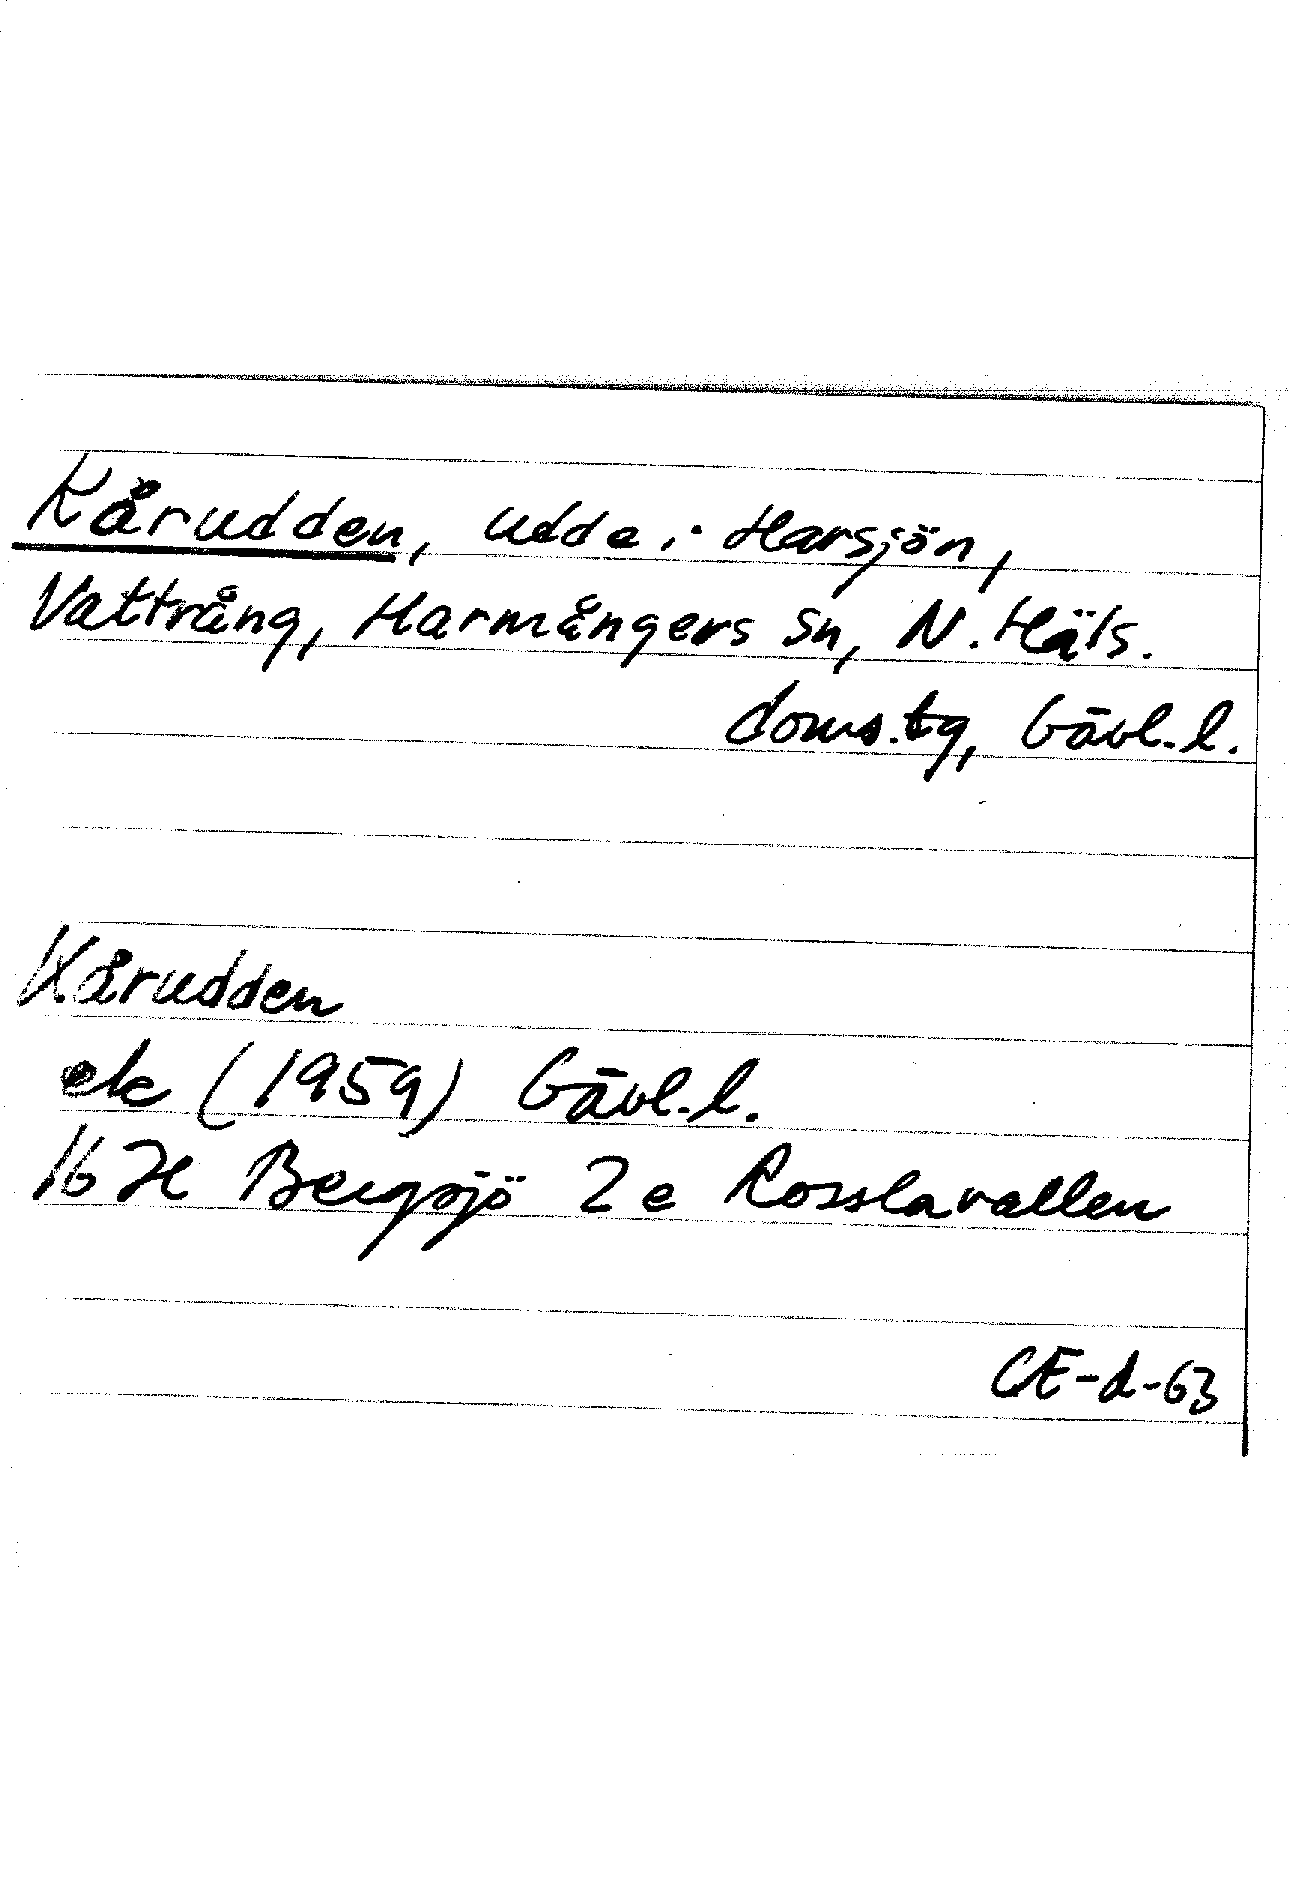 Kårudden, udde i Harsjön,
Vattrång, Harmångers sn, N. Häls.
doms.tg, Gävl.l.
Kårudden
ek (1959) Gävl.l.
16 H Bergsjö 2 e Rosslavallen
CE-d-63